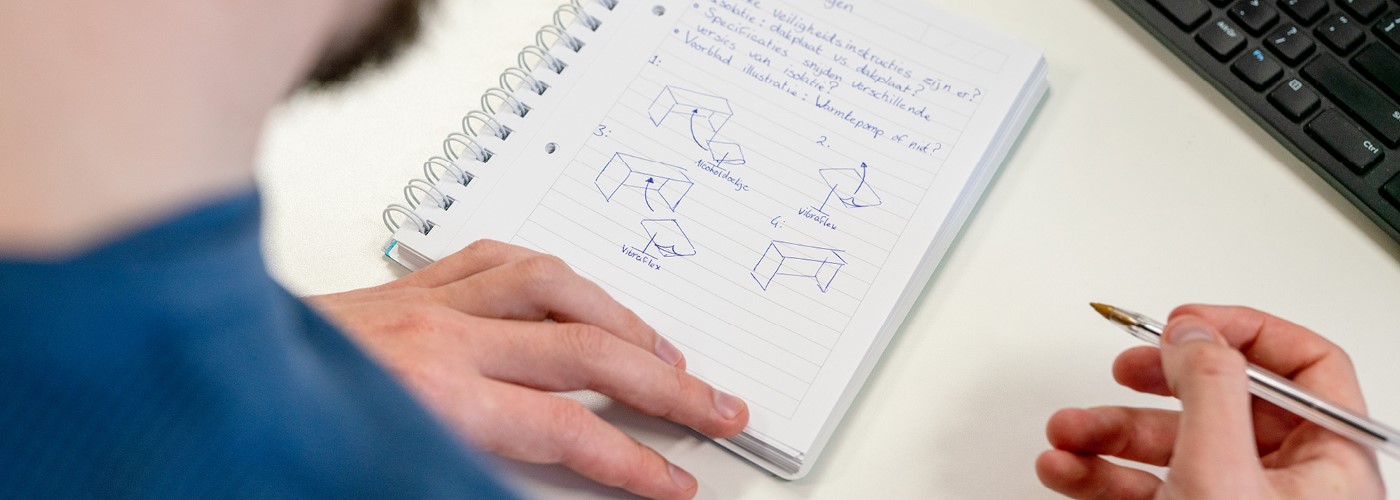 gen
ke veiligheidsinstructies zijn er?
Isolatie: dakplaat vs. dakplaat?
• Specificaties snijden verschillende
versies van isolatie?
• Voorblad illustratie: Warmtepomp of niet?
1:
Alcoholdoekje
2.
Vibraflex
3:
Vibraflex
4:
AltGr
Fn
Ctrl